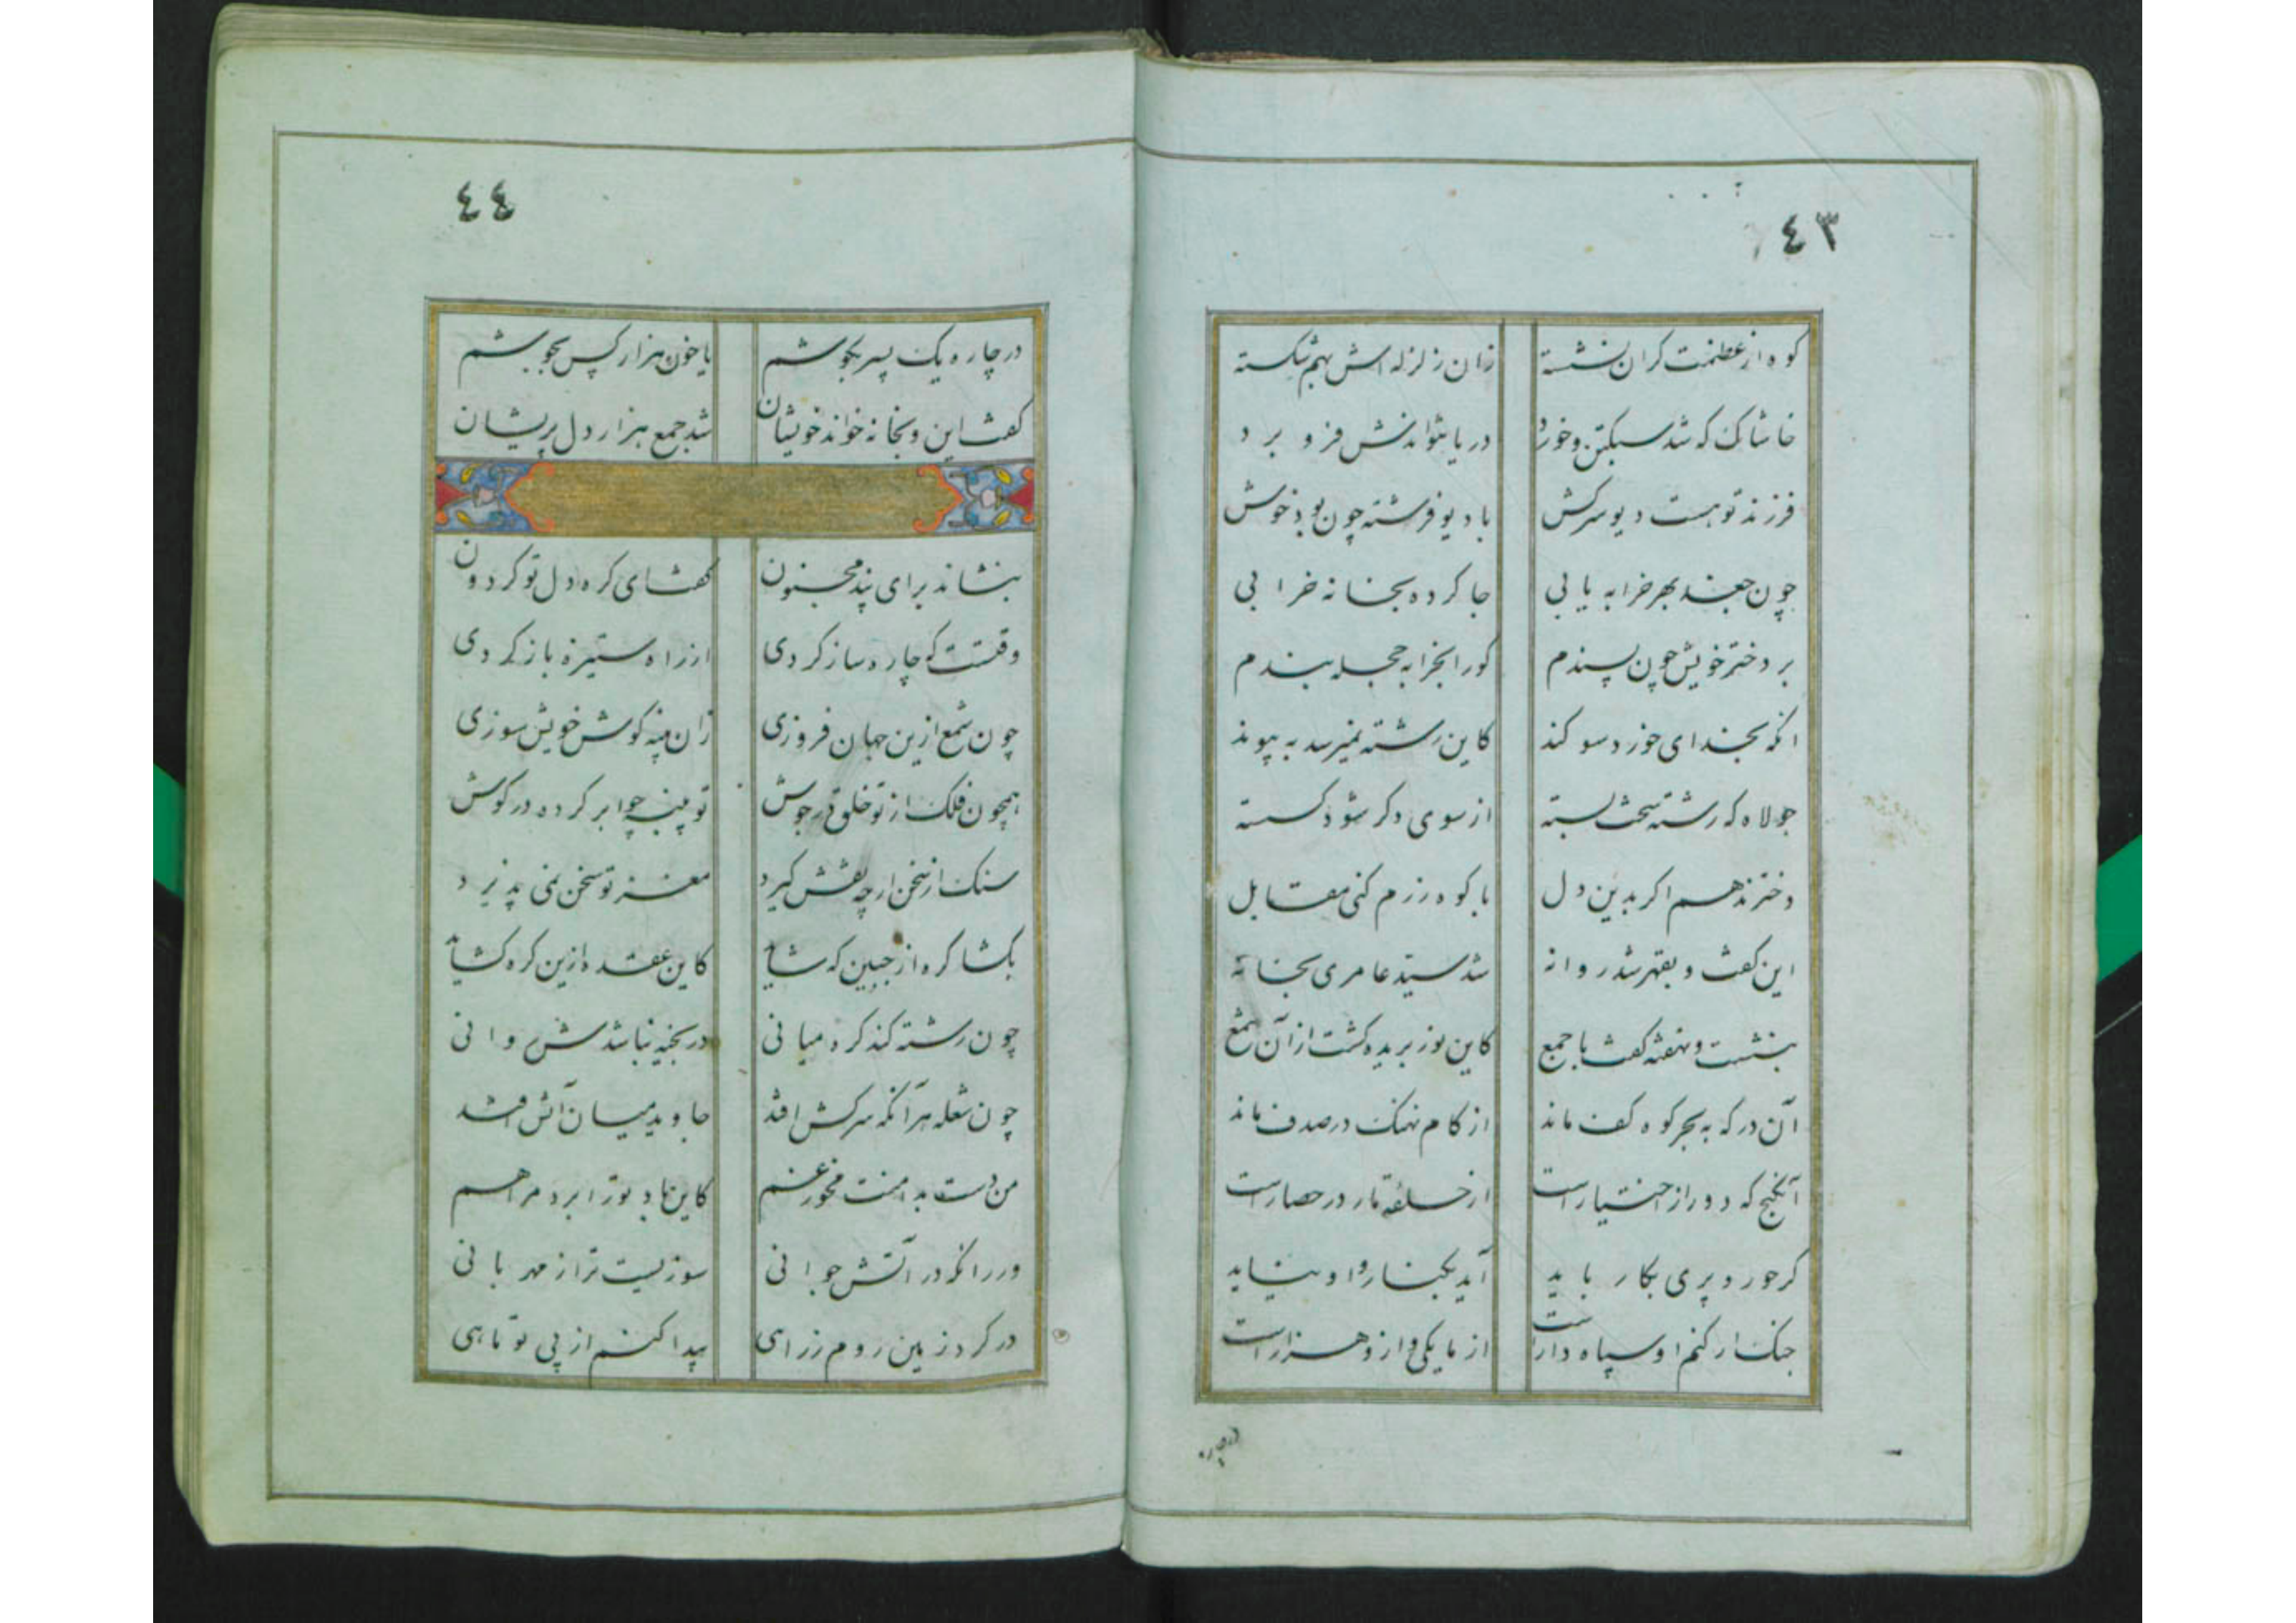 ٤٣
کوه از عظمت کران نشسته زان زلزله اش بهم شکسته
خاشاک که شد سبکتن و خورد دریا نتواندش فرو برد
فرزند تو هست دیو سرکش با دیو فرشته چون بود خوش
چون جغد بهر خرابه یابی جا کرده بخانه خرابی
بر دختر خویش چون پسندم کورا بخرابه حجله بندم
انکه بخدای خورد سوکند کاین رشته نمیرسد به پیوند
جولاه که رشته سخت بسته از سوی دکر شود کسسته
دختر ندهم اکر بدین دل با کوه رزم کنی مقابل
این کفت و بقهر شد روانه شد سید عامری بخانه
بنشست و نهفته کفت با جمع کاین نور بریده کشت از آن شمع
آن در که به بحر کوه کف ماند از کام نهنک در صدف ماند
آنکنج که دور از اختیار است از حلقه مار در حصار است
کر حور و پری بکار باید آید بکنار و او نیاید
جنک ار کنم او سپاه دار است از ما یکی و ازو هزار است
در چاره
٤٤
در چاره یک پسر بکوشم یا خون هزار کس بجوشم
کفت این و بخانه خواند خویشان شد جمع هزار دل پریشان
بنشاند برای پند مجنون کفت ای کره دل تو کردون
وقتست که چاره ساز کردی از راه ستیزه باز کردی
چون شمع ازین جهان فروزی زان پنبه کوش خویش سوزی
همچون فلک از تو خلق در جوش تو پنبه چو ابر کرده در کوش
سنک از سخن ار چه نقش کیرد مغز تو سخن نمی پذیرد
بکشا کره از جبین که شاید کاین عقده ازین کره کشاید
چون رشته کند کره میانی در بخیه نباشدش روانی
چون شعله هر آنکه سرکش افتد جاوید میان آتش افتد
من دست بدامنت مخور غم کاین باد بود ترا برد مرا هم
ور زانکه در آتش جوانی سوزیست ترا ز مهربانی
در کرد زمین روم ز راهی پیدا کنم از پی تو ماهی